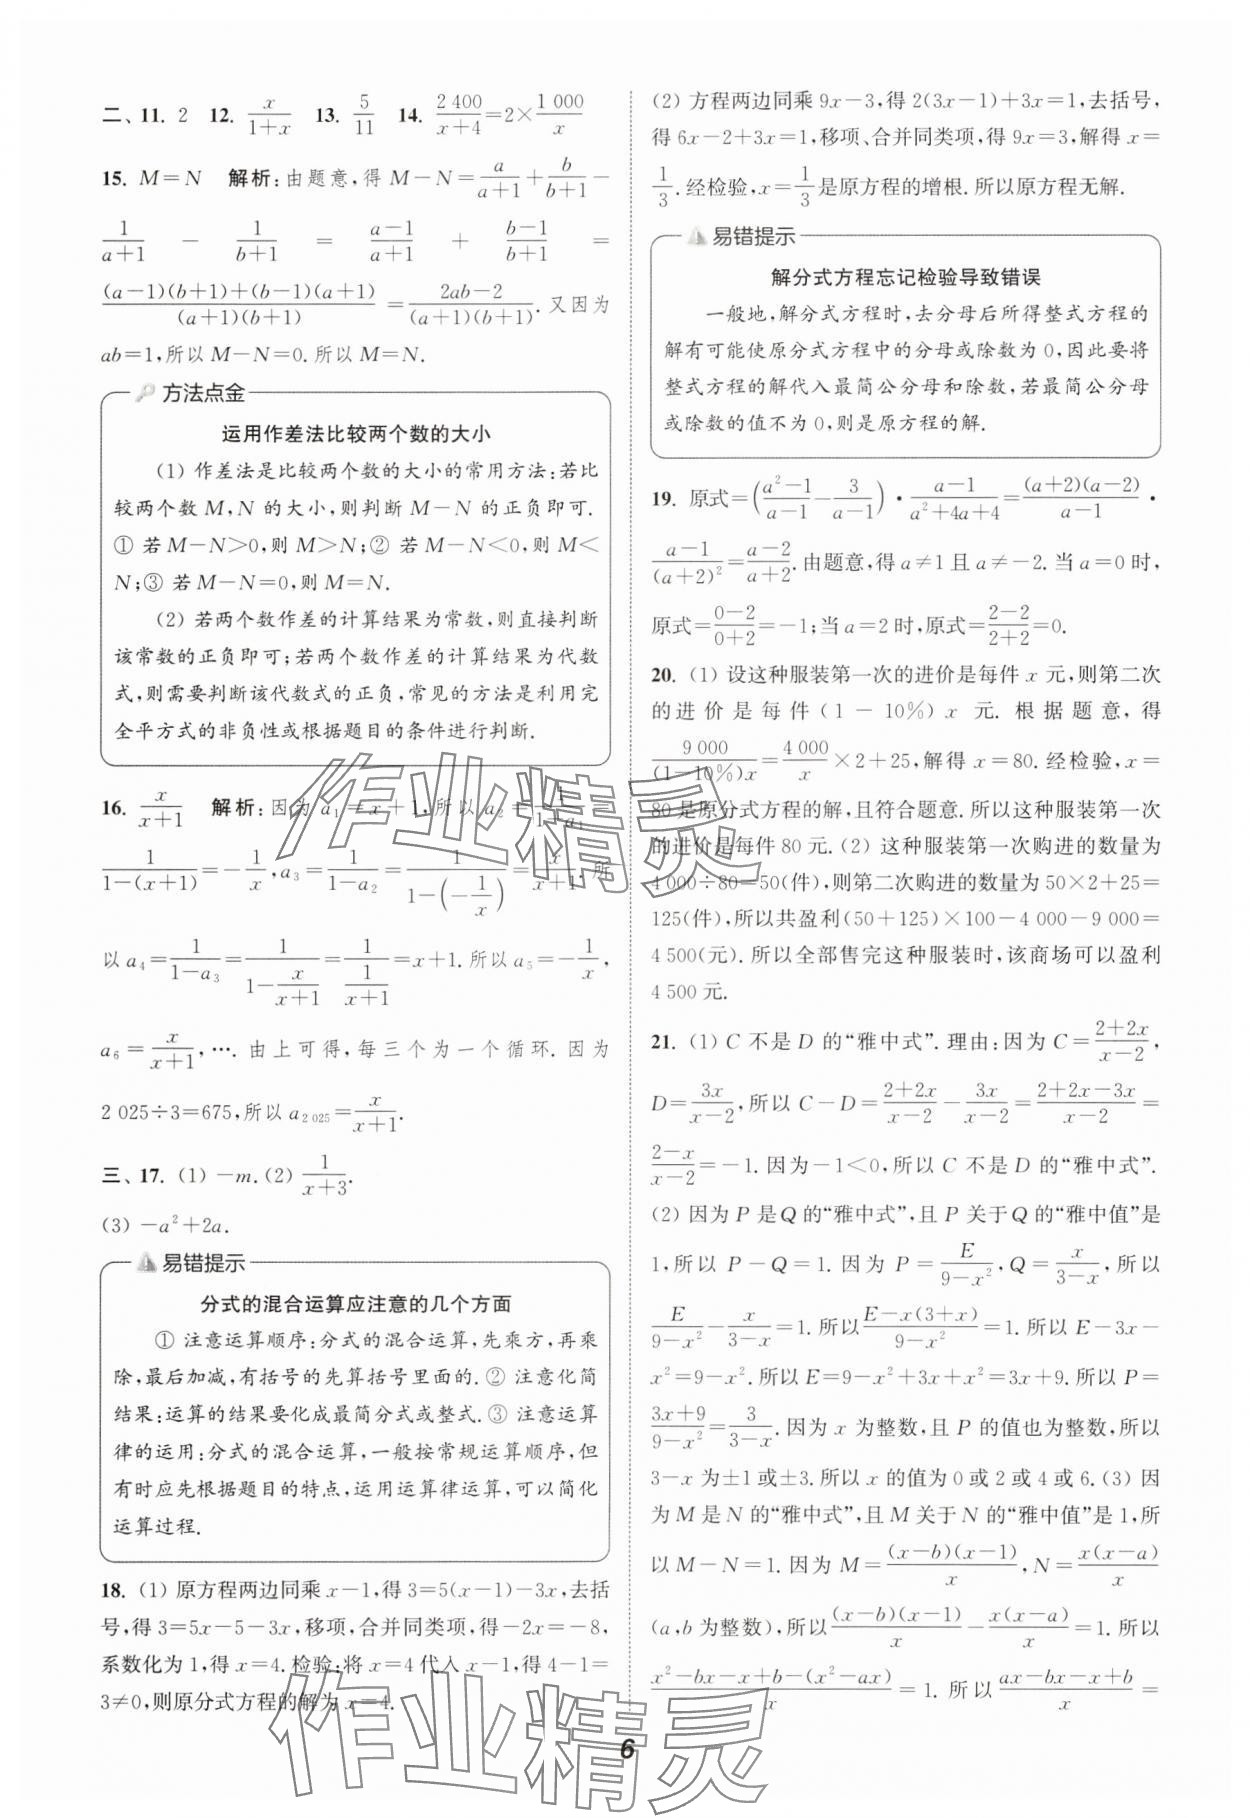 二、11. 2  12. x/(1+x)  13. 5/11  14. 2 400/(x+4)=2×1 000/x
15. M=N  解析:由题意,得 M−N=a/(a+1)+b/(b+1)−
1/(a+1)−1/(b+1)=(a−1)/(a+1)+(b−1)/(b+1)=
[(a−1)(b+1)+(b−1)(a+1)]/[(a+1)(b+1)]=(2ab−2)/[(a+1)(b+1)].又因为
ab=1,所以 M−N=0.所以 M=N.
方法点金
运用作差法比较两个数的大小
(1) 作差法是比较两个数的大小的常用方法:若比
较两个数 M,N 的大小,则判断 M−N 的正负即可.
① 若 M−N>0,则 M>N;② 若 M−N<0,则 M<
N;③ 若 M−N=0,则 M=N.
(2) 若两个数作差的计算结果为常数,则直接判断
该常数的正负即可;若两个数作差的计算结果为代数
式,则需要判断该代数式的正负,常见的方法是利用完
全平方式的非负性或根据题目的条件进行判断.
16. x/(x+1)  解析:因为 a₁=x+1,所以 a₂=1/(1−a₁)=
1/[1−(x+1)]=−1/x,a₃=1/(1−a₂)=1/[1−(−1/x)]=x/(x+1).所
以 a₄=1/(1−a₃)=1/[1−x/(x+1)]=1/[1/(x+1)]=x+1.所以 a₅=−1/x,
a₆=x/(x+1),….由上可得,每三个为一个循环.因为
2 025÷3=675,所以 a₂ ₀₂₅=x/(x+1).
三、17. (1) −m.(2) 1/(x+3).
(3) −a²+2a.
易错提示
分式的混合运算应注意的几个方面
① 注意运算顺序:分式的混合运算,先乘方,再乘
除,最后加减,有括号的先算括号里面的.② 注意化简
结果:运算的结果要化成最简分式或整式.③ 注意运算
律的运用:分式的混合运算,一般按常规运算顺序,但
有时应先根据题目的特点,运用运算律运算,可以简化
运算过程.
18. (1) 原方程两边同乘 x−1,得 3=5(x−1)−3x,去括
号,得 3=5x−5−3x,移项,合并同类项,得−2x=−8,
系数化为 1,得 x=4.检验:将 x=4 代入 x−1,得 4−1=
3≠0,则原分式方程的解为 x=4.
(2) 方程两边同乘 9x−3,得 2(3x−1)+3x=1,去括号,
得 6x−2+3x=1,移项、合并同类项,得 9x=3,解得 x=
1/3.经检验,x=1/3是原方程的增根.所以原方程无解.
易错提示
解分式方程忘记检验导致错误
一般地,解分式方程时,去分母后所得整式方程的
解有可能使原分式方程中的分母或除数为 0,因此要将
整式方程的解代入最简公分母和除数,若最简公分母
或除数的值不为 0,则是原方程的解.
19. 原式=((a²−1)/(a−1)−3/(a−1))·(a−1)/(a²+4a+4)=(a+2)(a−2)/(a−1)·
(a−1)/(a+2)²=(a−2)/(a+2).由题意,得 a≠1 且 a≠−2.当 a=0 时,
原式=(0−2)/(0+2)=−1;当 a=2 时,原式=(2−2)/(2+2)=0.
20. (1) 设这种服装第一次的进价是每件 x 元,则第二次
的进价是每件(1−10%)x 元.根据题意,得
9 000/[(1−10%)x]=4 000/x×2+25,解得 x=80.经检验,x=
80 是原分式方程的解,且符合题意.所以这种服装第一次
的进价是每件 80 元.(2) 这种服装第一次购进的数量为
4 000÷80=50(件),则第二次购进的数量为 50×2+25=
125(件),所以共盈利(50+125)×100−4 000−9 000=
4 500(元).所以全部售完这种服装时,该商场可以盈利
4 500 元.
21. (1) C 不是 D 的“雅中式”.理由:因为 C=(2+2x)/(x−2),
D=3x/(x−2),所以 C−D=(2+2x)/(x−2)−3x/(x−2)=(2+2x−3x)/(x−2)=
(2−x)/(x−2)=−1.因为−1<0,所以 C 不是 D 的“雅中式”.
(2) 因为 P 是 Q 的“雅中式”,且 P 关于 Q 的“雅中值”是
1,所以 P−Q=1.因为 P=E/(9−x²),Q=x/(3−x),所以
E/(9−x²)−x/(3−x)=1.所以[E−x(3+x)]/(9−x²)=1.所以 E−3x−
x²=9−x².所以 E=9−x²+3x+x²=3x+9.所以 P=
(3x+9)/(9−x²)=3/(3−x).因为 x 为整数,且 P 的值也为整数,所以
3−x 为±1 或±3.所以 x 的值为 0 或 2 或 4 或 6.(3) 因
为 M 是 N 的“雅中式”,且 M 关于 N 的“雅中值”是 1,所
以 M−N=1.因为 M=(x−b)(x−1)/x,N=x(x−a)/x
(a,b 为整数),所以(x−b)(x−1)/x−x(x−a)/x=1.所以
[x²−bx−x+b−(x²−ax)]/x=1.所以(ax−bx−x+b)/x=
6
作业精灵
作业精灵